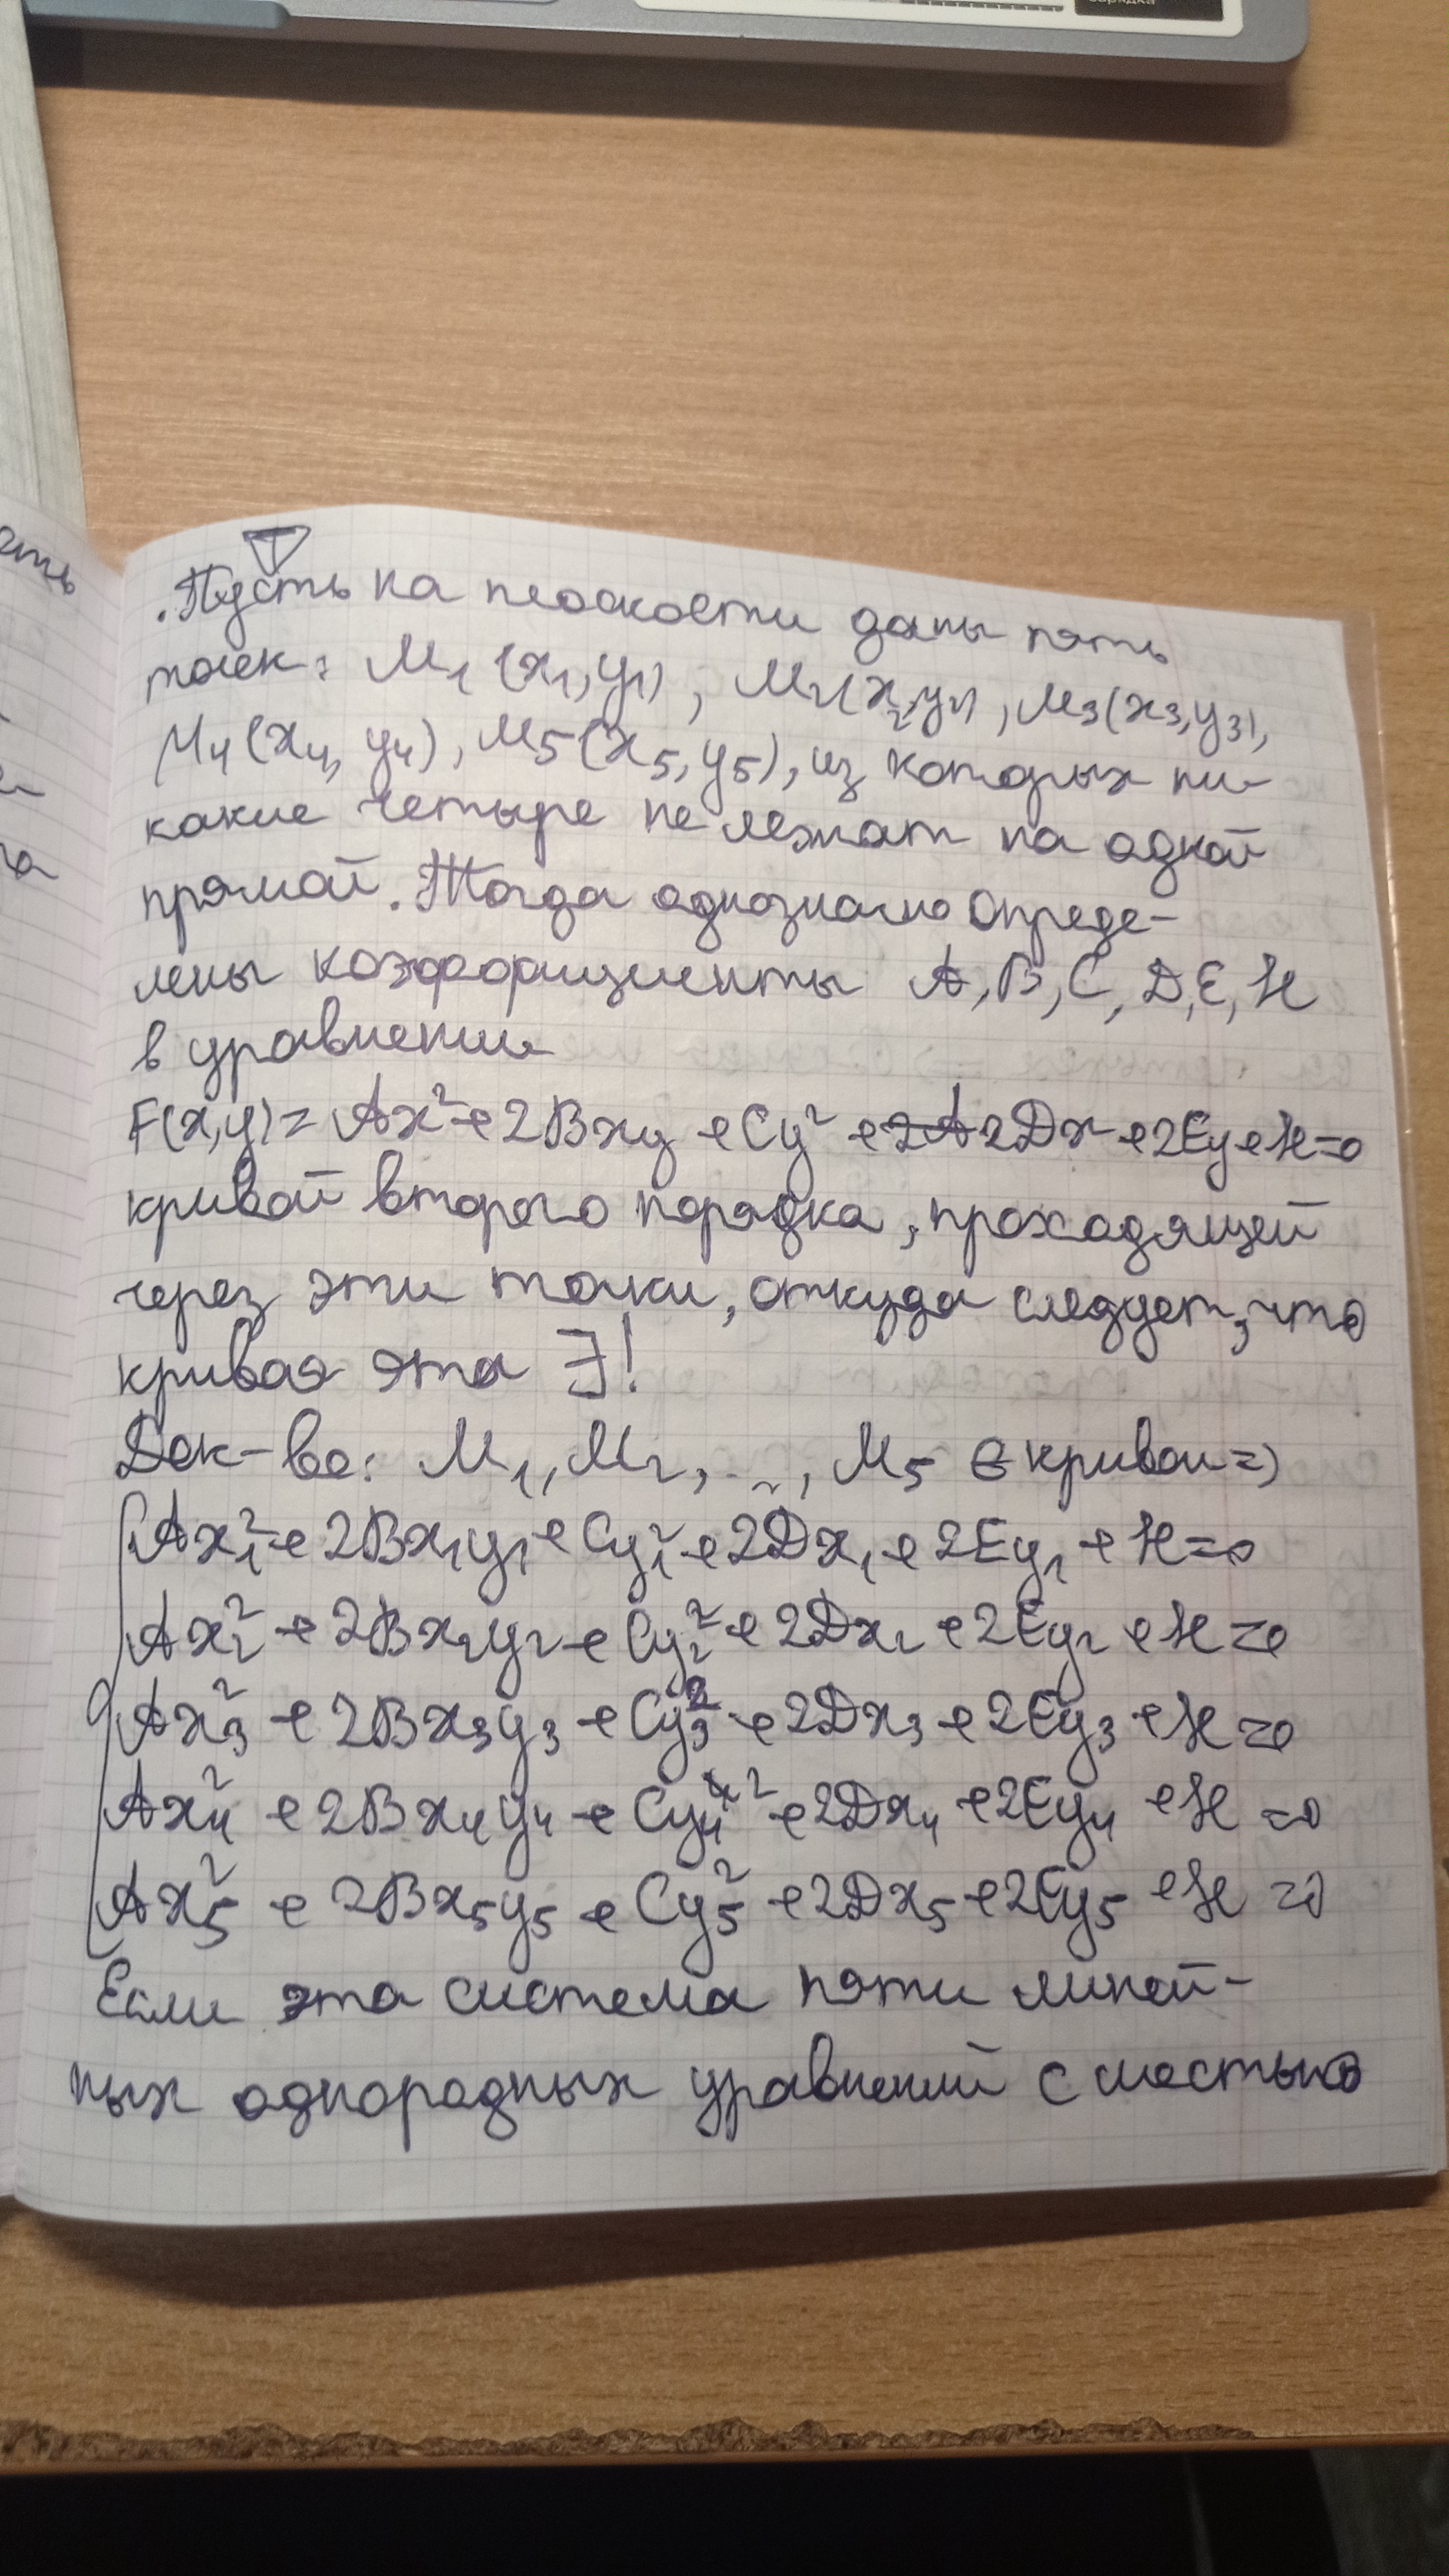 зарядка
ать
.Пусть на плоскости даны пять
точек: M₁(x₁,y₁), M₂(x₂,y₂), M₃(x₃,y₃),
M₄(x₄,y₄), M₅(x₅,y₅), из которых ни-
какие четыре не лежат на одной
прямой. Тогда однозначно опреде-
лены коэффициенты A, B, C, D, E, H
в уравнении
F(x,y)= Ax²+2Bxy+Cy²+2A2Dx+2Ey+H=0
кривой второго порядка, проходящей
через эти точки, откуда следует, что
кривая эта ∃!
Док-во: M₁, M₂, ..., M₅ ∈ кривой ⇒
Ax₁²+2Bx₁y₁+Cy₁²+2Dx₁+2Ey₁+H=0
Ax₂²+2Bx₂y₂+Cy₂²+2Dx₂+2Ey₂+H=0
Ax₃²+2Bx₃y₃+Cy₃²+2Dx₃+2Ey₃+H=0
Ax₄²+2Bx₄y₄+Cy₄²+2Dx₄+2Ey₄+H=0
Ax₅²+2Bx₅y₅+Cy₅²+2Dx₅+2Ey₅+H=0
Если эта система пяти линей-
ных однородных уравнений с шестью